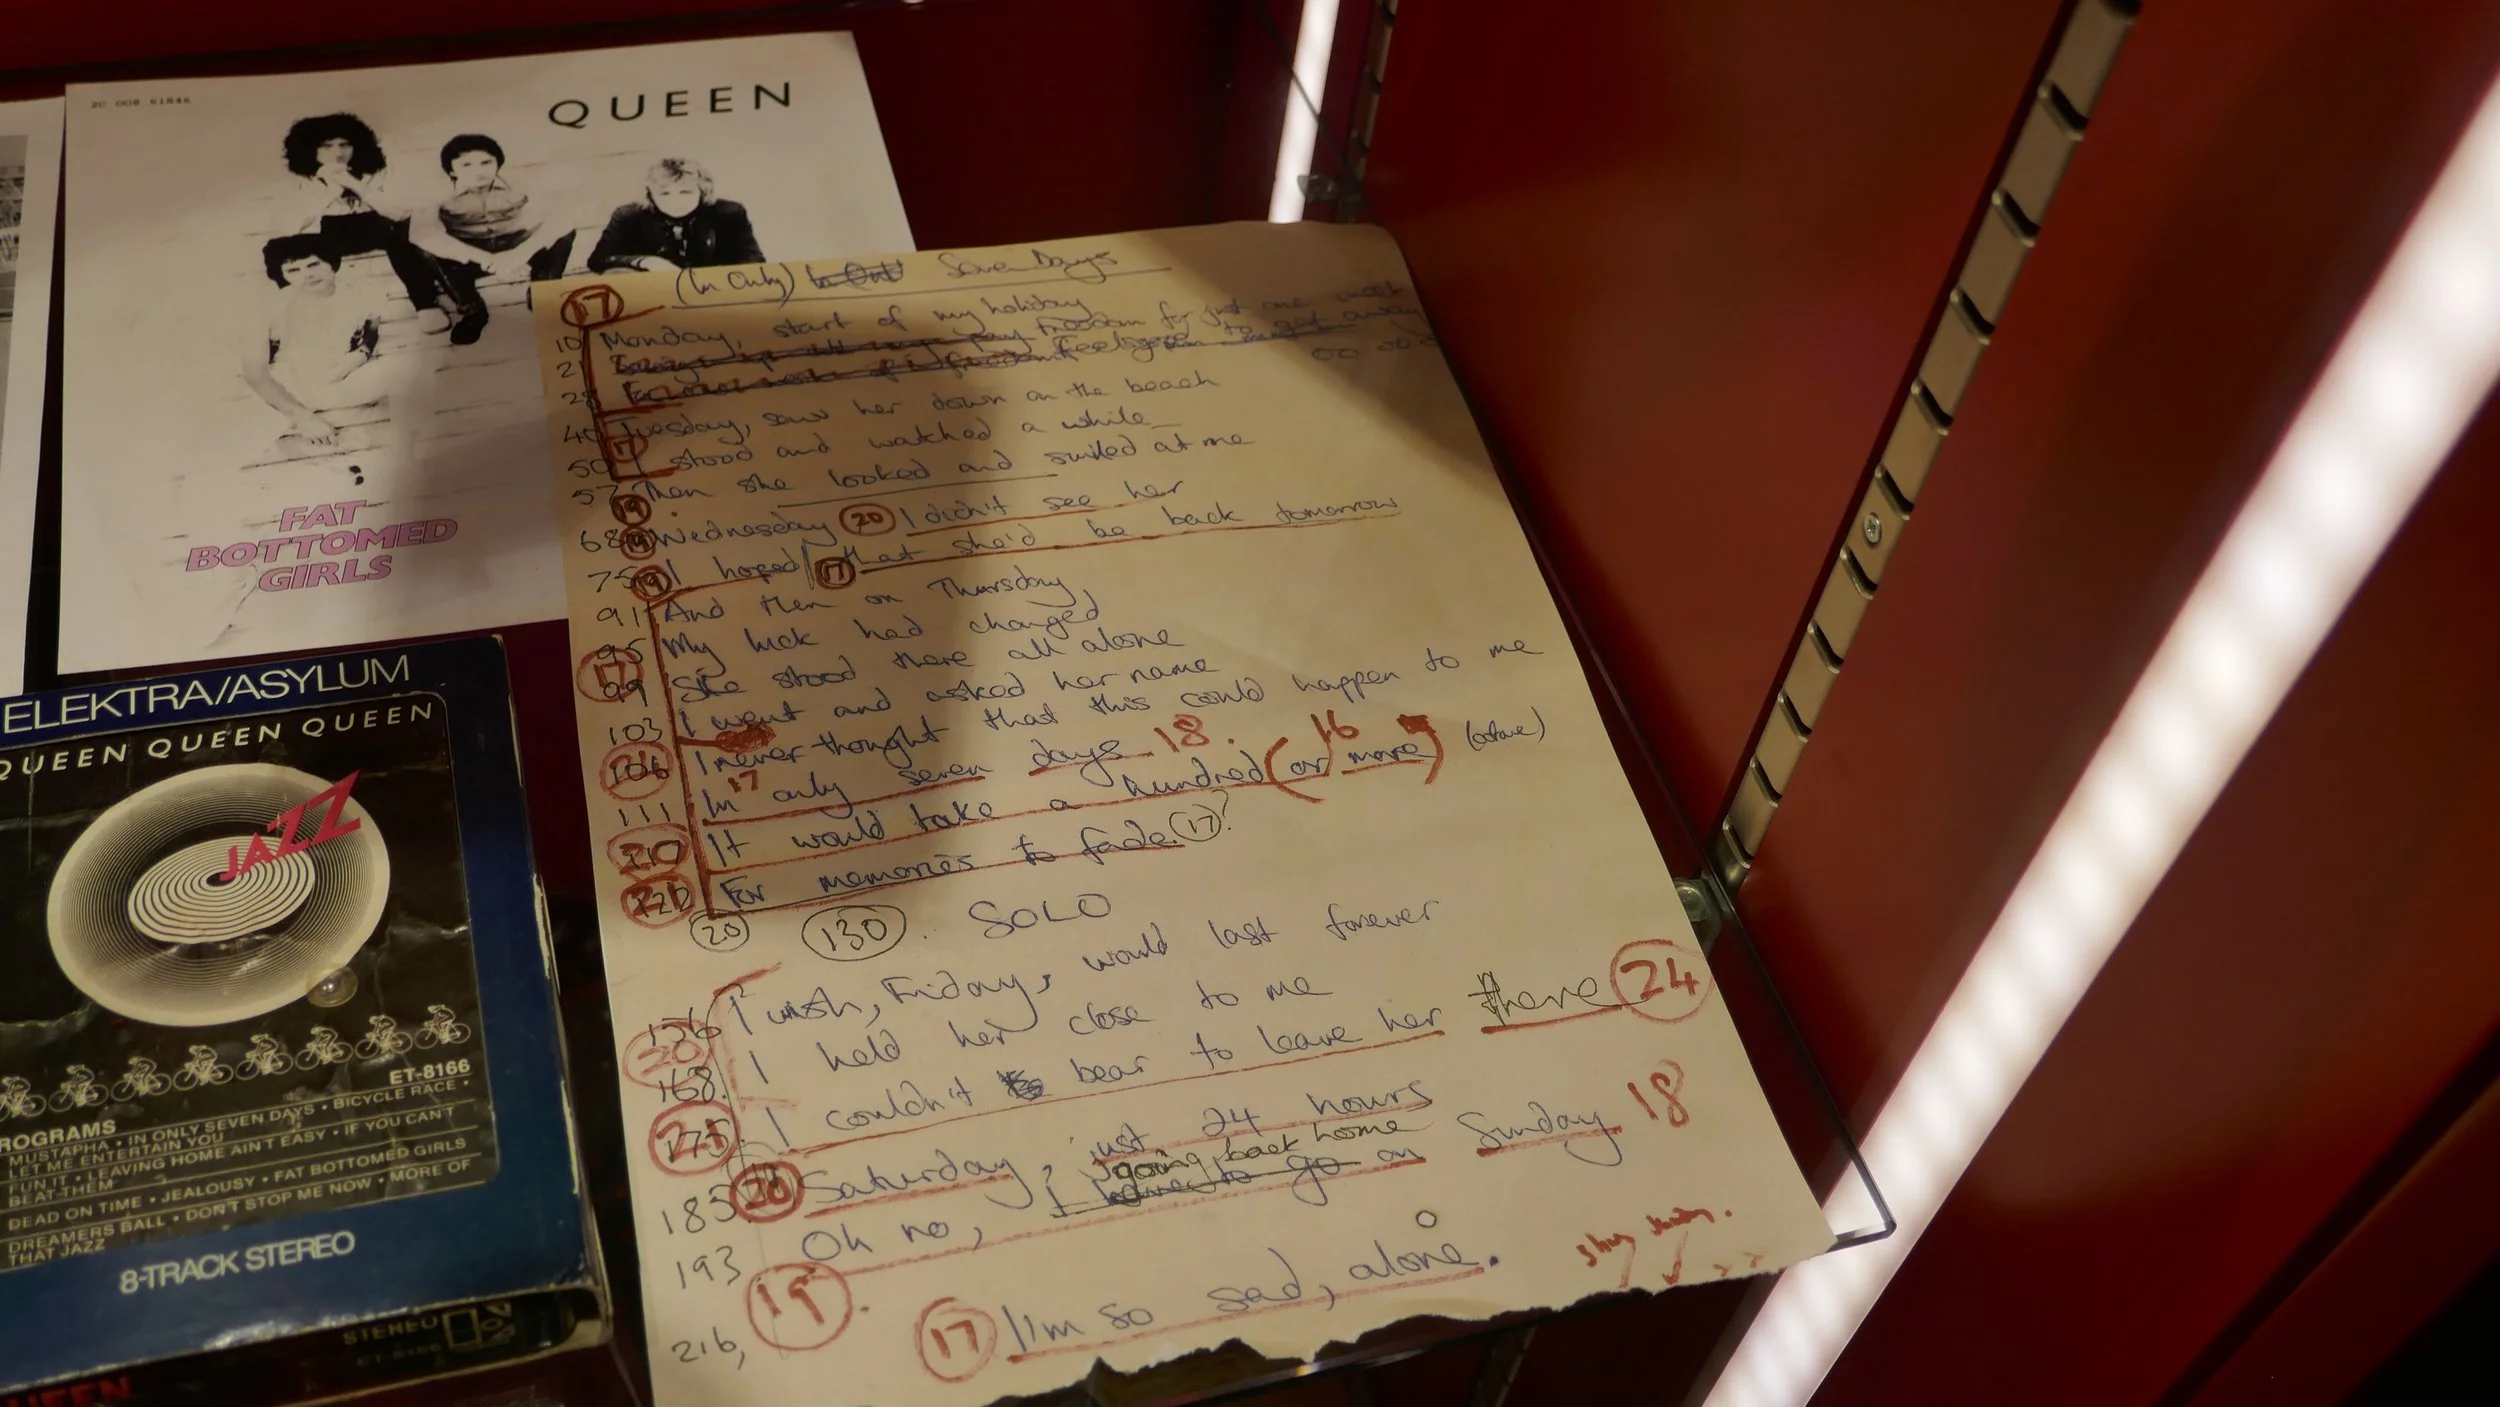 2C 008 61846
QUEEN
FAT
BOTTOMED
GIRLS
(In Only) Seven Days
17
Monday, start of my holiday
Freedom for just one week
10
21 Feels to get away
28
40 Tuesday, saw her down on the beach
17
50 I stood and watched a while
57 Then she looked and smiled at me
19
68 Wednesday 20 I didn't see her
75 19 I hoped 17 that she'd be back tomorrow
91 And then on Thursday
95 My luck had changed
17
99 She stood there all alone
103 I went and asked her name
106 I never thought that this could happen to me
111 In 17 only seven days 18. 16
It would take a hundred (or more) (octave)
For memories to fade. 17?
20 130. SOLO
156 I wish, Friday, would last forever
20
168. I held her close to me
175. I couldn't bear to leave her there 24
185 20 Saturday, just 24 hours
going back home
193 Oh no, I have to go on Sunday 18
19.
216, 17 I'm so sad, alone.
ELEKTRA/ASYLUM
QUEEN QUEEN QUEEN
JAZZ
ET-8166
PROGRAMS
MUSTAPHA • IN ONLY SEVEN DAYS • BICYCLE RACE •
LET ME ENTERTAIN YOU
FUN IT • LEAVING HOME AIN'T EASY • IF YOU CAN'T
BEAT THEM
DEAD ON TIME • JEALOUSY • FAT BOTTOMED GIRLS
DREAMERS BALL • DON'T STOP ME NOW • MORE OF
THAT JAZZ
8-TRACK STEREO
STEREO
ET-8166
QUEEN